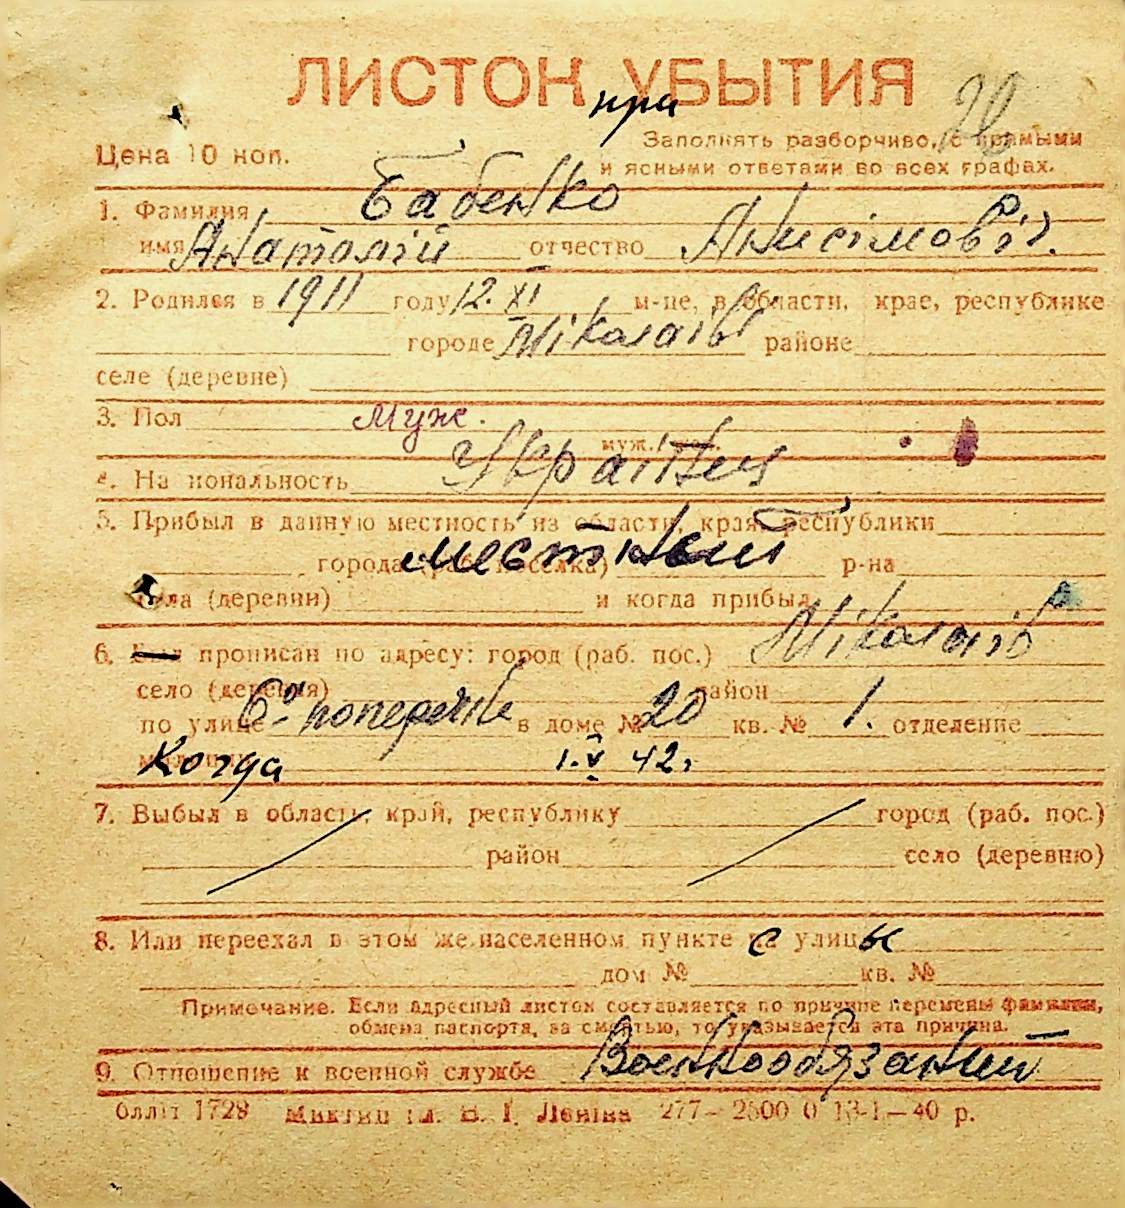 ЛИСТОК при УБЫТИЯ
20
Цена 10 коп.
Заполнять разборчиво, с прямыми
и ясными ответами во всех графах.
1. Фамилия Бабенко
имя Анатолій отчество Анисімовіч.
2. Родился в 1911 году 12. XI м-це, в области, крае, республике
городе Міколаїв районе
селе (деревне)
3. Пол Муж.
муж.
4. Национальность Українец
5. Прибыл в данную местность из области, края, республики
города (раб. поселка) местный р-на
села (деревни) и когда прибыл
6. прописан по адресу: город (раб. пос.) Міколаів
село (деревня) район
по улице 6а поперечн в доме № 20 кв. № 1. отделение
Когда 1.V 42г
7. Выбыл в область, край, республику город (раб. пос.)
район село (деревню)
8. Или переехал в этом же населенном пункте с улицы
дом № кв. №
Примечание. Если адресный листок составляется по причине перемены фамилии,
обмена паспорта, за смертью, то указывается эта причина.
9. Отношение к военной службе Военнообязаный
блліт 1728 ім. В. І. Леніна 277—2500 0 13-1—40 р.